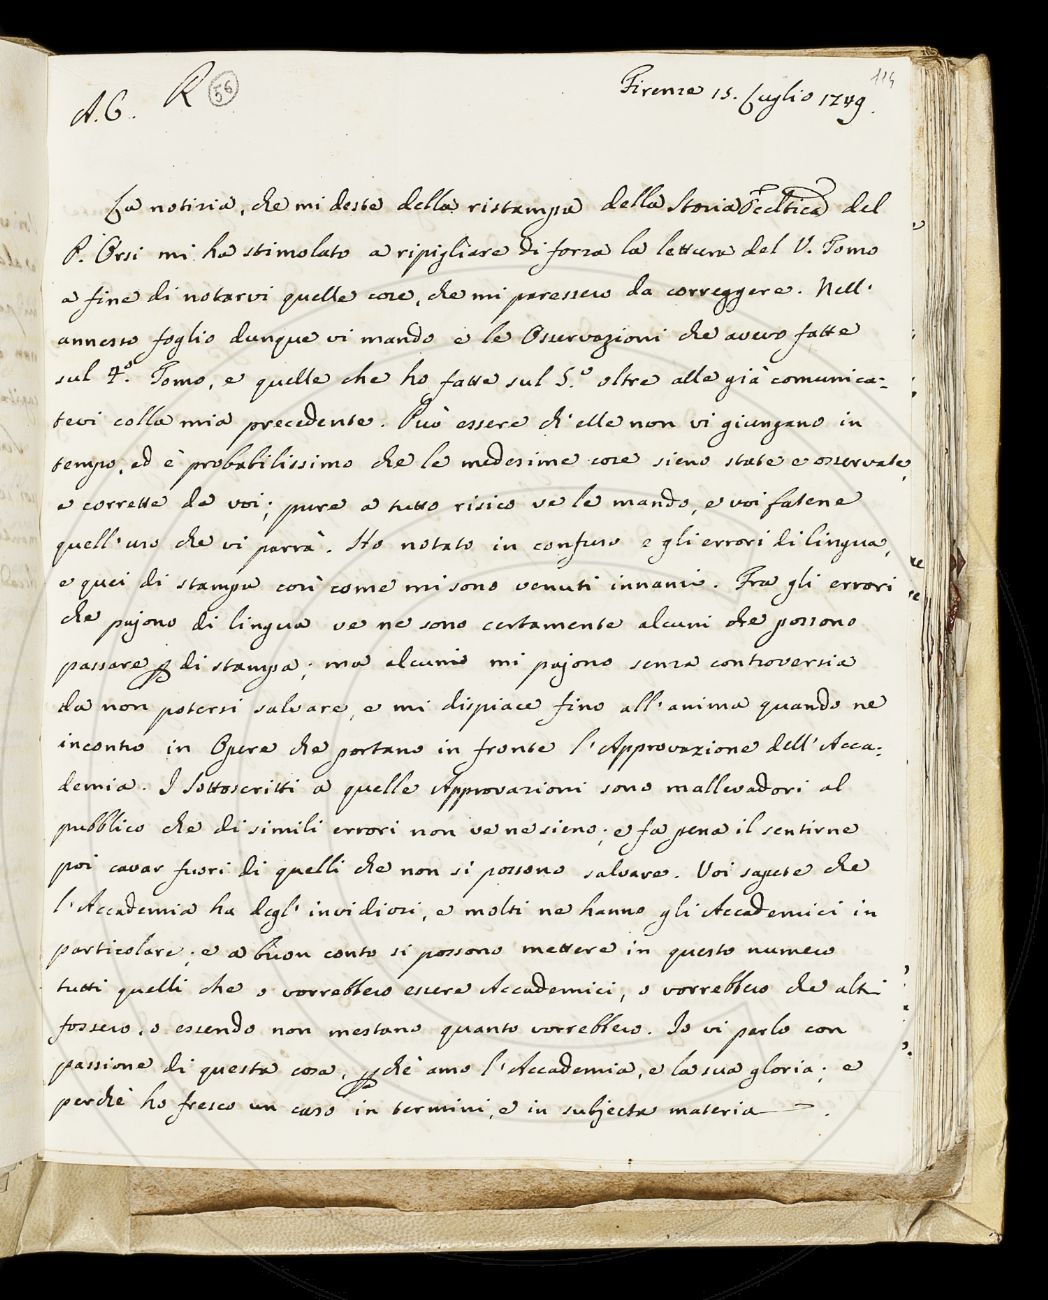 A. C. R 56
Firenze 15. Luglio 1749.
114
La notizia, che mi deste della ristampa della Storia Eccl.tica del
P. Orsi mi ha stimolato a ripigliare di forza la lettura del V. Tomo
a fine di notarvi quelle cose, che mi paressero da correggere. Nell'
annesso foglio dunque vi mando e le Osservazioni che avevo fatte
sul 4.° Tomo, e quelle che ho fatte sul 5.° oltre alle già comunica=
tevi colla mia precedente. Può essere ch'elle non vi giungano in
tempo, ed è probabilissimo che le medesime cose sieno state e osservate,
e corrette da voi; pure a tutto risico ve le mando, e voi fatene
quell'uso che vi parrà. Ho notato in confuso e gli errori di lingua,
e quei di stampa così come mi sono venuti innanzi. Fra gli errori
che pajono di lingua ve ne sono certamente alcuni che possono
passare p di stampa; ma alcuni mi pajono senza controversia
da non potersi salvare, e mi dispiace fino all'anima quando ne
incontro in Opere che portano in fronte l'Approvazione dell'Acca=
demia. I Sottoscritti a quelle Approvazioni sono mallevadori al
pubblico che di simili errori non ve ne sieno; e fa pena il sentirne
poi cavar fuori di quelli che non si possono salvare. Voi sapete che
l'Accademia ha degl'invidiosi, e molti ne hanno gli Accademici in
particolare; e a buon conto si possono mettere in questo numero
tutti quelli che o vorrebbero essere Accademici, o vorrebbero che altri
fossero, o essendo non mestano quanto vorrebbero. Io vi parlo con
passione di questa cosa, pchè amo l'Accademia, e la sua gloria; e
perchè ho fresco un caso in termini, e in subjecta materia.